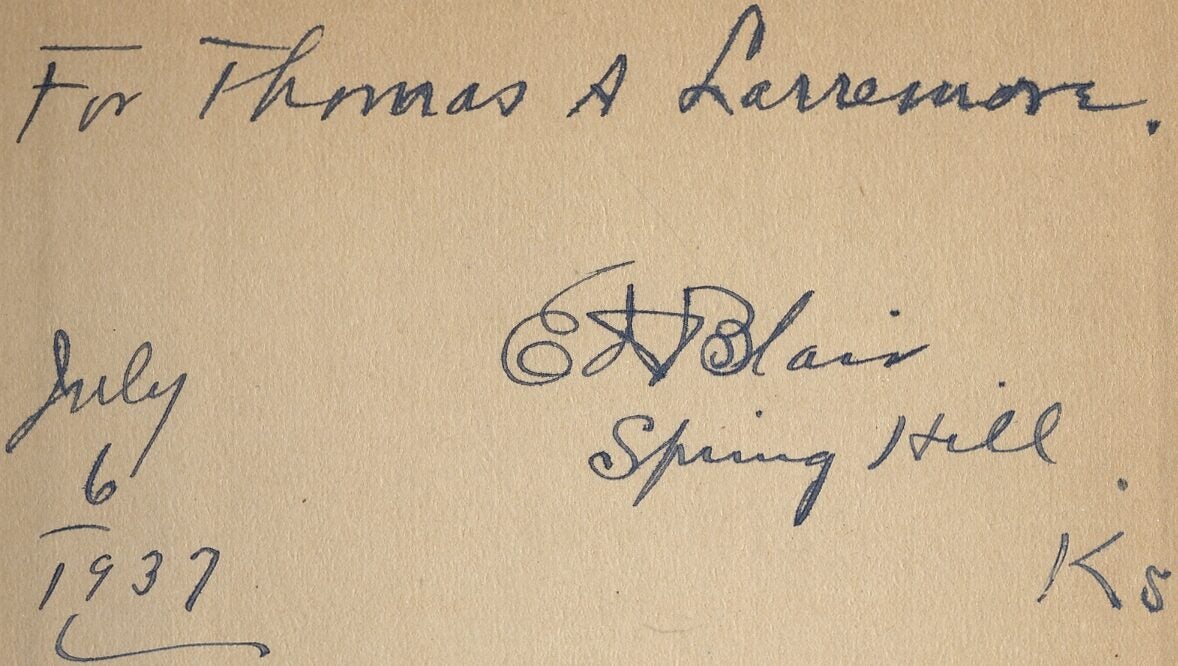 For Thomas A Larremore.
Ed Blair
Spring Hill
Ks
July
6
1937